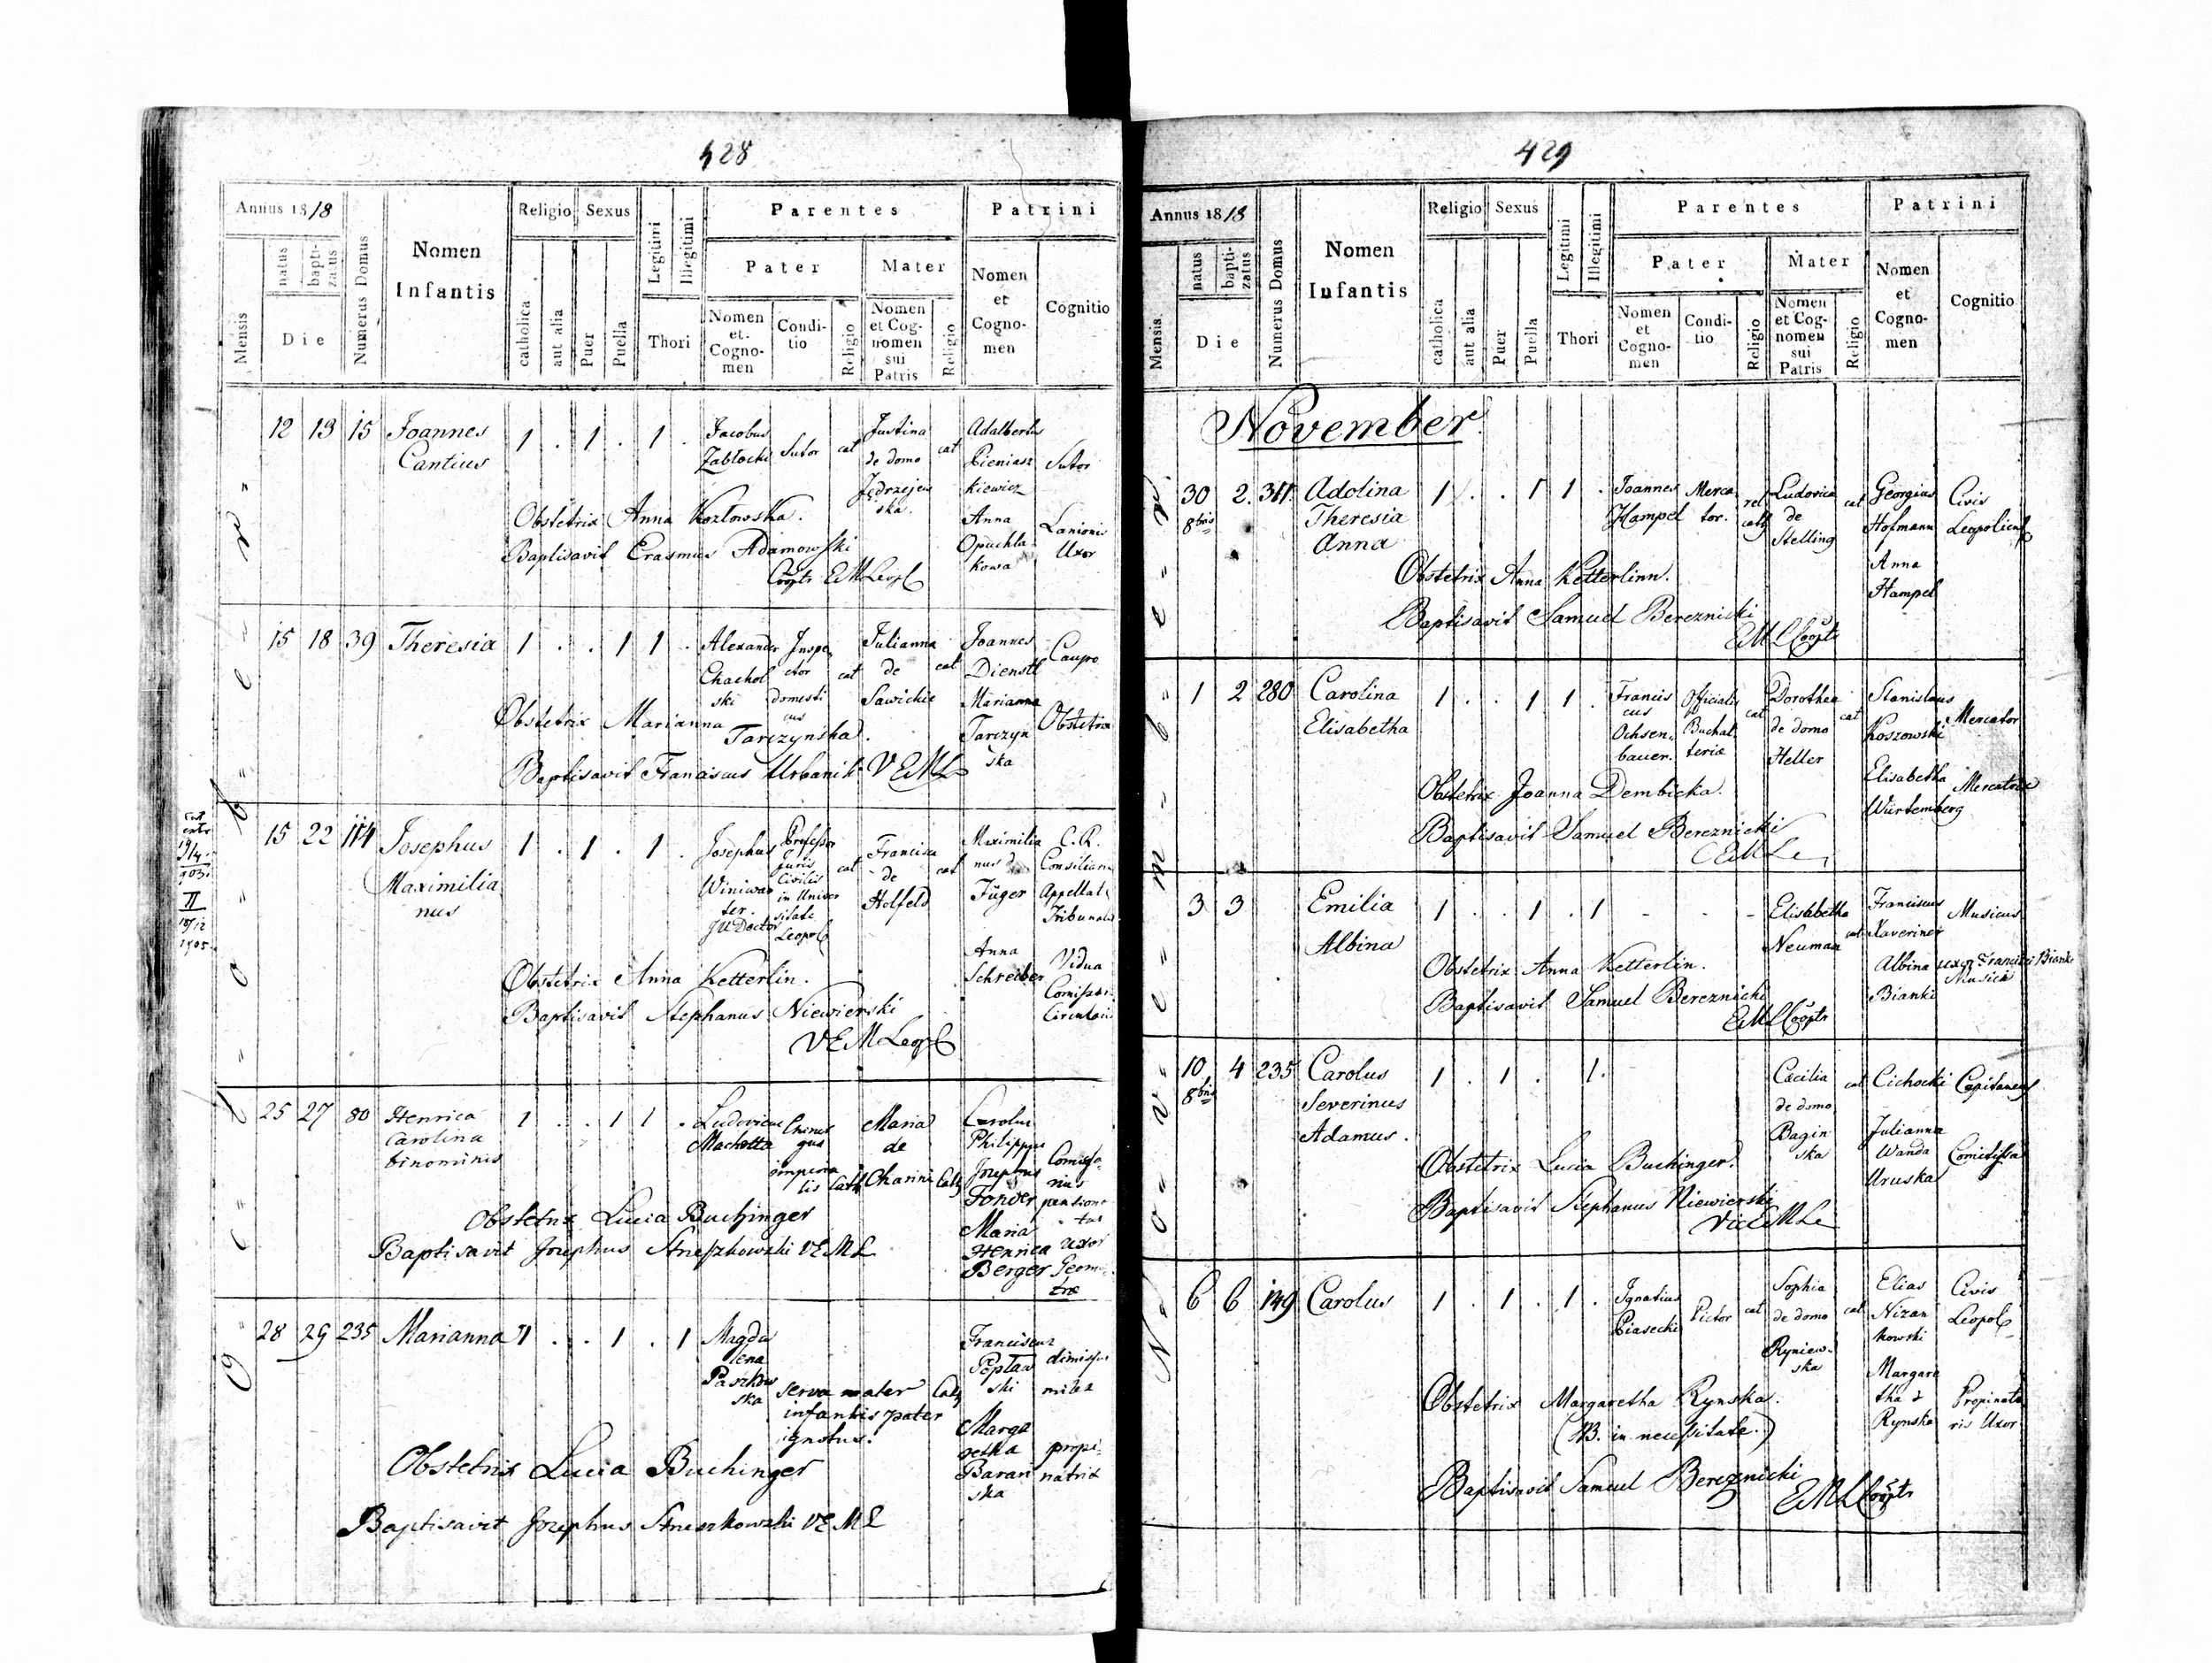 428
Annus 1818
Mensis
natus
bapti-
zatus
Die
Numerus Domus
Nomen
Infantis
Religio
catholica
aut alia
Sexus
Puer
Puella
Legitimi
Illegitimi
Thori
Parentes
Pater
Nomen
et
Cogno-
men
Condi-
tio
Religio
Mater
Nomen
et Cog-
nomen
sui
Patris
Religio
Patrini
Nomen
et
Cogno-
men
Cognitio
October
12 13 15 Joannes
Cantius
1 . 1 . 1 .
Jacobus
Zabłocki
Sutor
cat
Justina
de domo
Jędrzejew
ska
cat
Adalbertus
Pieniasz
kiewicz
Sutor
Anna
Opuchla
kowa
Lanionis
Uxor
Obstetrix Anna Kozłowska.
Baptisavit Erasmus Adamowski
Coopts EMLeopl
15 18 39 Theresia
1 . . 1 1 .
Alexander
Chachol
ski
Inspe
ctor
domesti
cus
cat
Julianna
de
Sawickie
cat
Joannes
Dienstl
Caupo
Marianna
Tarczyn
ska
Obstetrix
Obstetrix Marianna
Tarczynska.
Baptisavit Franciscus Urbanik VEML
15 22 114 Josephus
Maximilia
nus
1 . 1 . 1 .
Josephus
Winiwar
ter.
JUDoctor
Professor
Juris
Civilis
in Univer
sitate
Leopol
cat
Francisca
de
Holfeld
cat
Maximilia
nus
Füger
C. R.
Consiliarius
Appellat
Tribunalis
Anna
Schreiber
Vidua
Obstetrix Anna Ketterlin.
Baptisavit Stephanus Niewierski
VEMLeopl
25 27 80 Henrica
Carolina
binominis
1 . . 1 1 .
Ludovicus
Machotta
Chirur
gus
imperia
lis
Cath
Maria
de
Channi
Cath
Carolus
Philippus
Josephus
Fonder
Comissa
rius
pensiona
tus
Maria
Henrica
Berger
uxor
Geome
træ
Obstetrix Lucia Buchinger
Baptisavit Josephus Strieszkowski VEML
28 29 235 Marianna
1 . . 1 . 1
Magda
lena
Paszkow
ska
serva mater
infantis pater
ignotus.
Cath
Franciscus
Peptaw
ski
dimissus
miles
Marga
retha
Baran
ska
propi
natrix
Obstetrix Lucia Buchinger
Baptisavit Josephus Strieszkowski VEML
429
Annus 1818
Mensis
natus
bapti-
zatus
Die
Numerus Domus
Nomen
Infantis
Religio
catholica
aut alia
Sexus
Puer
Puella
Legitimi
Illegitimi
Thori
Parentes
Pater
Nomen
et
Cogno-
men
Condi-
tio
Religio
Mater
Nomen
et Cog-
nomen
sui
Patris
Religio
Patrini
Nomen
et
Cogno-
men
Cognitio
November
November
30 2. 311. Adolina
8bris
Theresia
Anna
1 . . 1 1 .
Joannes
Hampel
Merca
tor.
rel
cath
Ludovica
de
Stelling
cat
Georgius
Hofmann
Civis
Leopoliens
Anna
Hampel
Obstetrix Anna Ketterlinn.
Baptisavit Samuel Bereznicki
EMLCoopts
1 2 280 Carolina
Elisabetha
1 . . 1 1 .
Francis
cus
Ochsen
bauer.
Officialis
Buchal
teriæ
cat
Dorothea
de domo
Heller
cat
Stanislaus
Koszowski
Mercator
Elisabetha
Würtemberg
Mercatrix
Obstetrix Joanna Dembicka.
Baptisavit Samuel Bereznicki
CEMLe
3 3 Emilia
Albina
1 . . 1 . 1
Elisabetha
Neuman
cat
Franciscus
Xaveriner
Musicus
Albina
Bianki
uxor Francisci Bianki
Musici
Obstetrix Anna Ketterlin.
Baptisavit Samuel Bereznicki
EMLCoopts
10 4 235 Carolus
8bris
Severinus
Adamus.
1 . 1 . 1.
Cæcilia
de domo
Bagin
ska
cat
Cichocki
Capitaneus
Julianna
Wanda
Uruska
Comitissa
Obstetrix Lucia Buchinger.
Baptisavit Stephanus Niewierski
VicEMLe
6 6 149 Carolus
1 . 1 . 1 .
Ignatius
Piasecki
Pictor
cat
Sophia
de domo
Ryniew
ska
cat
Elias
Nizan
kowski
Civis
Leopol
Margare
tha
Rynska
Propinato
ris Uxor
Obstetrix Margaretha Rynska.
(B. in necessitate.)
Baptisavit Samuel Bereznicki
EMLCoopts